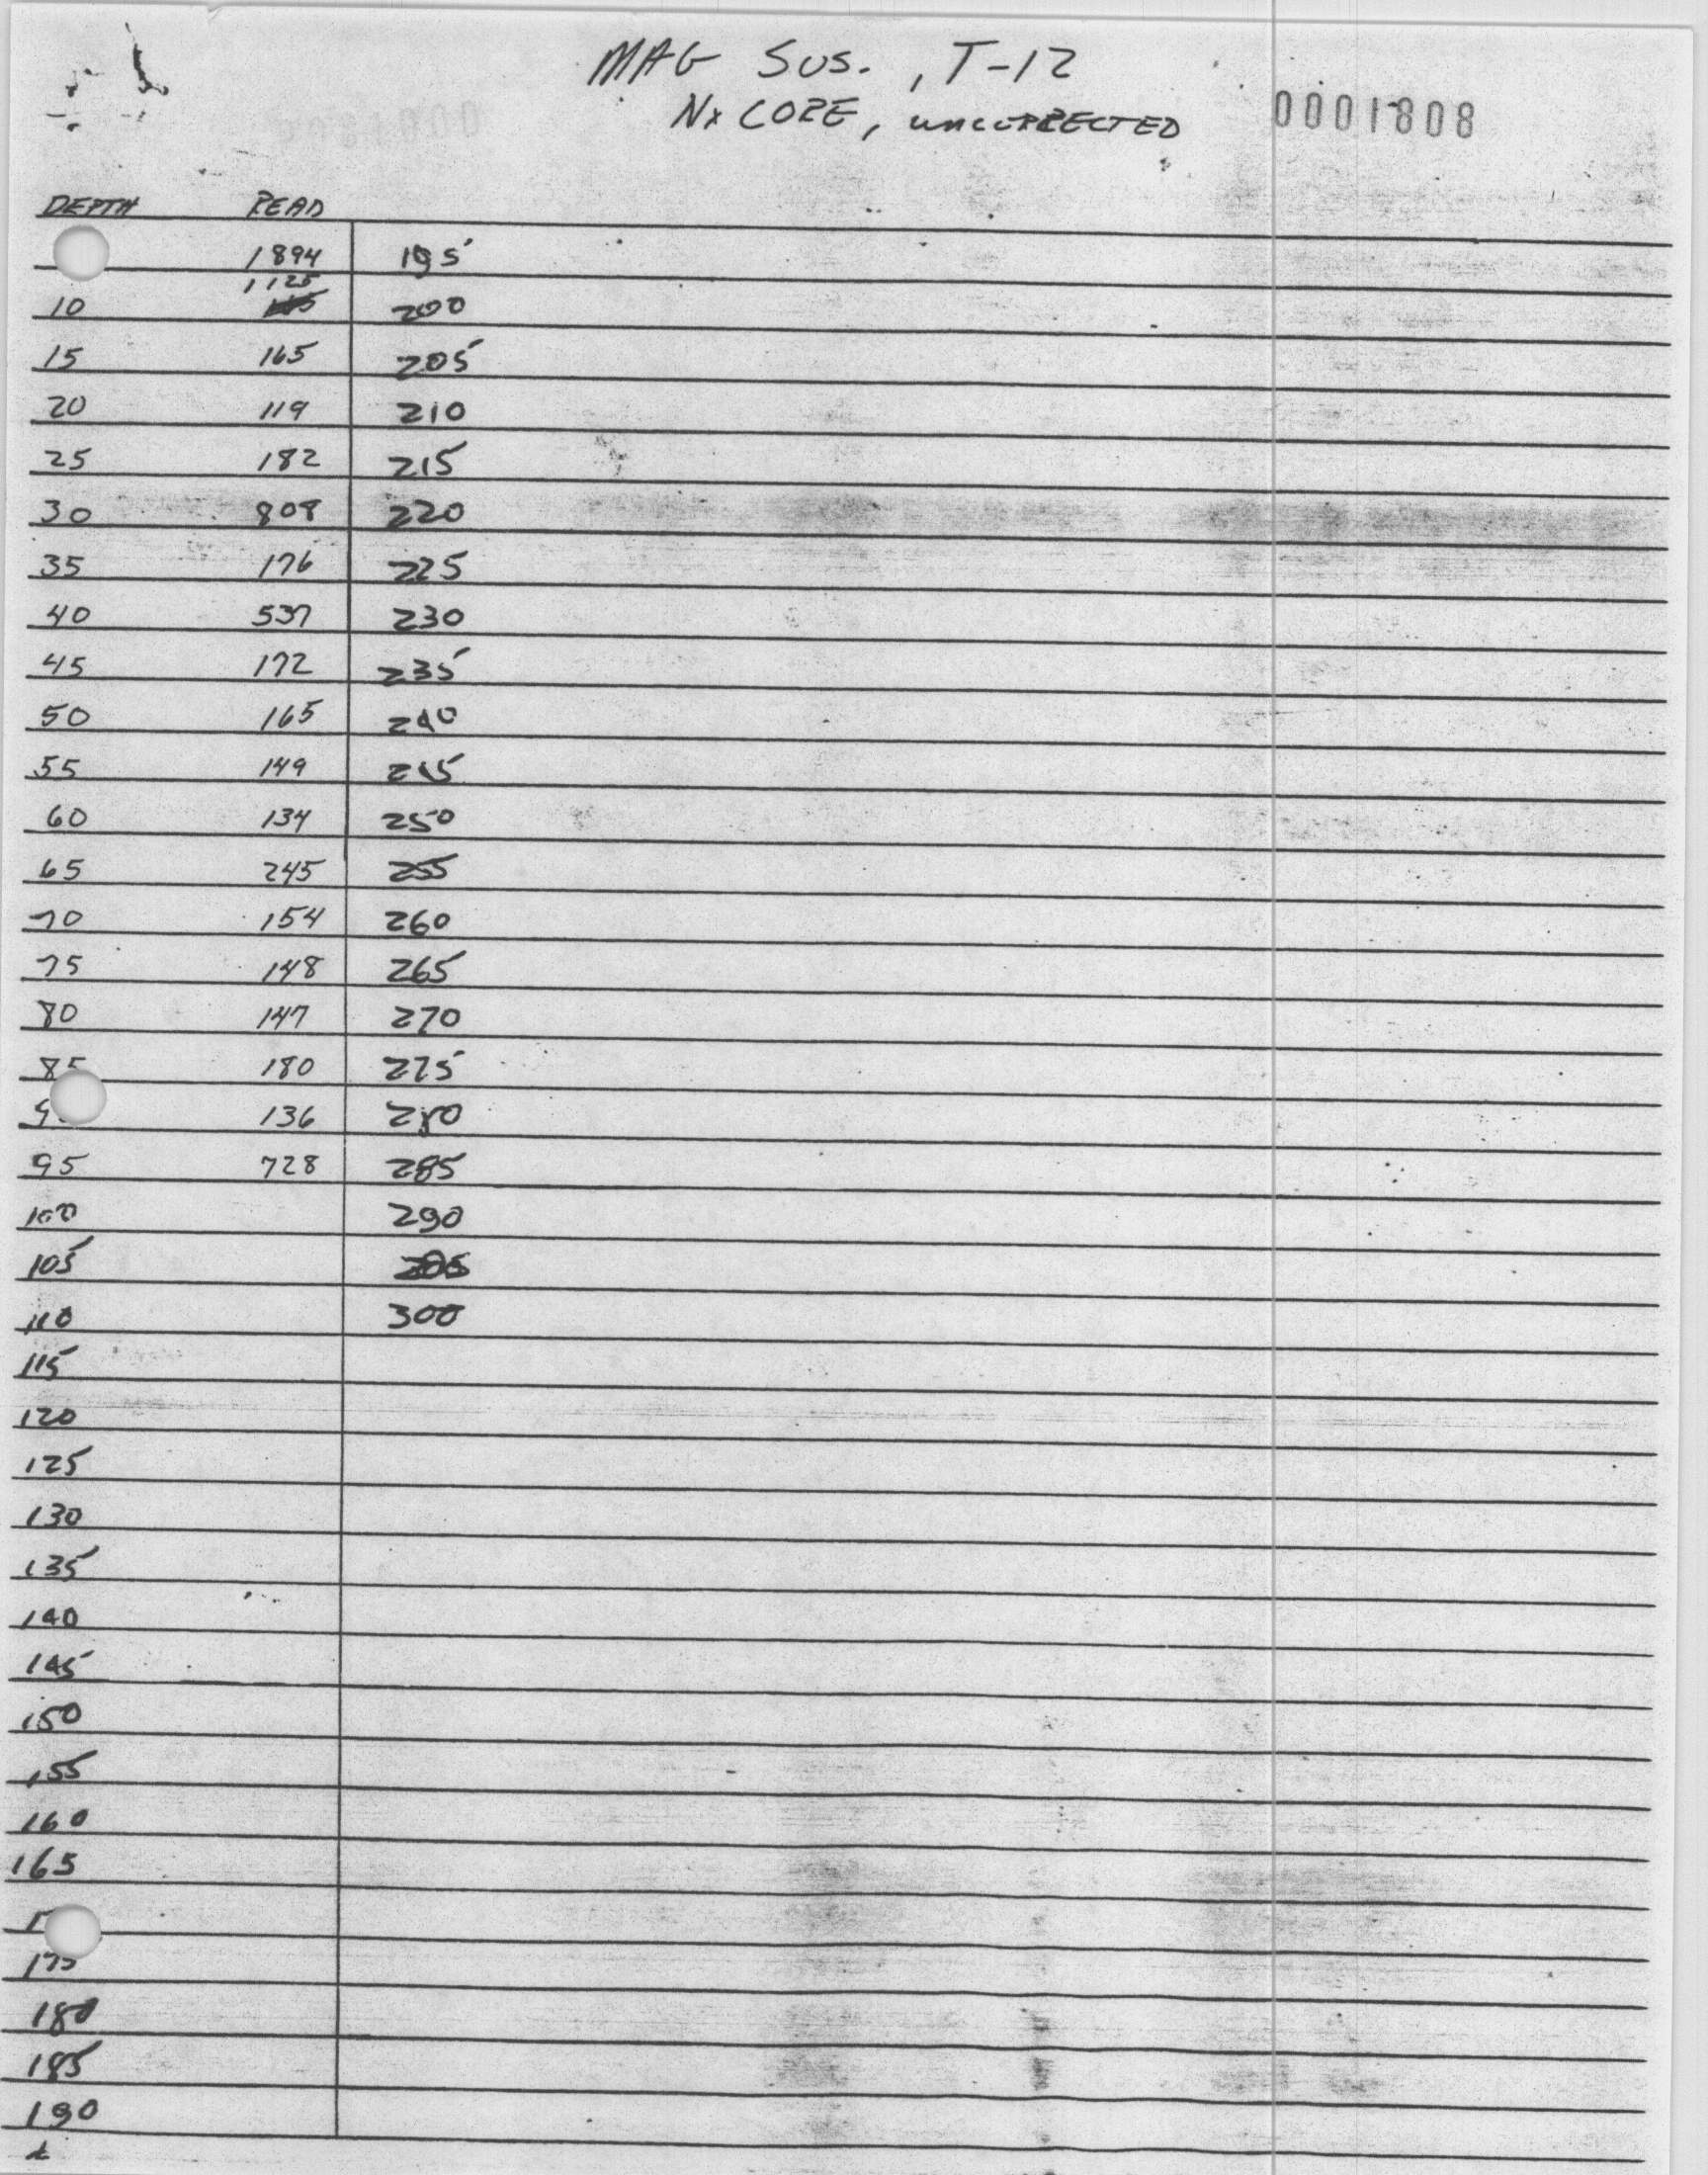 MAG SUS., T-12
Nx CORE, UNCORRECTED
0001808
DEPTH READ
1894 195
1125
10 200
15 165 205
20 119 210
25 182 215
30 808 220
35 176 225
40 537 230
45 172 235
50 165 240
55 149 245
60 134 250
65 245 255
70 154 260
75 148 265
80 147 270
85 180 275
136 280
95 728 285
100 290
105
110 300
115
120
125
130
135
140
145
150
155
160
165
175
180
185
190